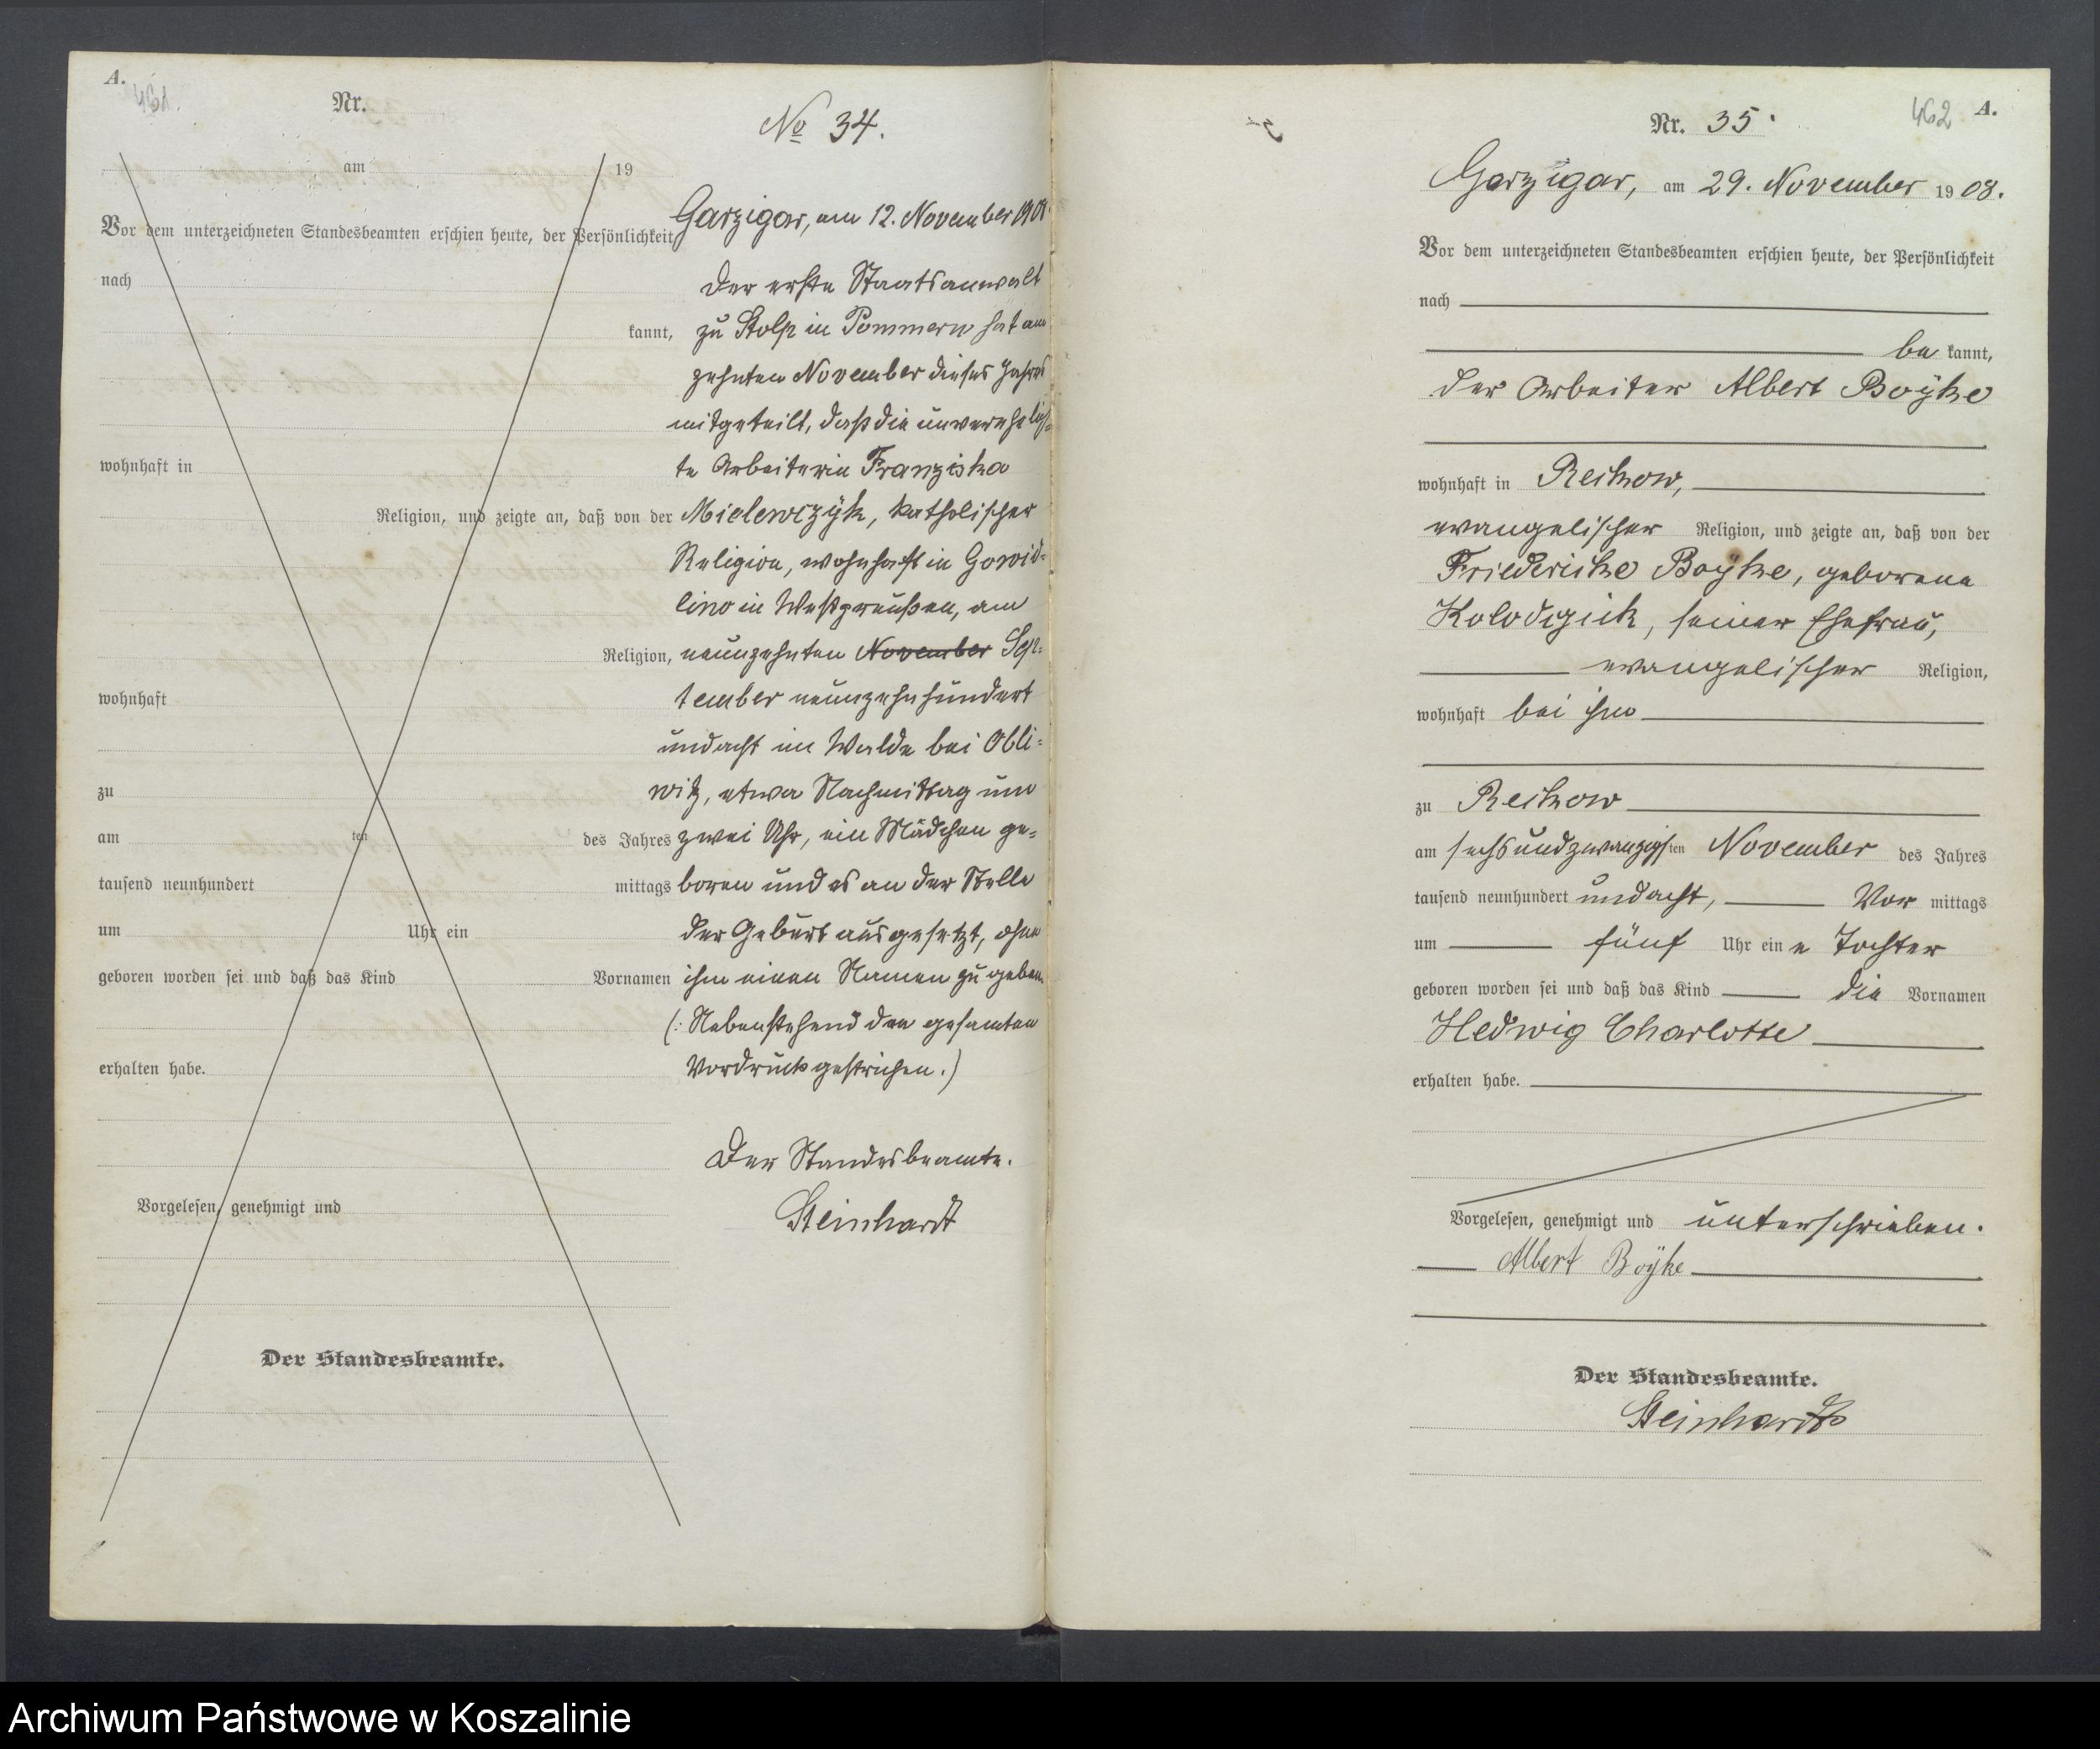 A.
461.
Nr.
am 19
Vor dem unterzeichneten Standesbeamten erschien heute, der Persönlichkeit
nach
kannt,
wohnhaft in
Religion, und zeigte an, daß von der
Religion,
wohnhaft
zu
am ten des Jahres
tausend neunhundert mittags
um Uhr ein
geboren worden sei und daß das Kind Vornamen
erhalten habe.
Vorgelesen, genehmigt und
Der Standesbeamte.
No 34.
Garzigar, am 12. November 1908.
Der erste Staatsanwalt
zu Stolp in Pommern hat am
zehnten November dieses Jahres
mitgeteilt, daß die unverehelich=
te Arbeiterin Franziska
Mielewczyk, katholischer
Religion, wohnhaft in Gowid=
lino in Westpreußen, am
neunzehnten November Sep=
tember neunzehnhundert
undacht im Walde bei Obli=
witz, etwa Nachmittag um
zwei Uhr, ein Mädchen ge=
boren und es an der Stelle
der Geburt ausgesetzt, ohne
ihm einen Namen zu geben.
(: Nebenstehend den gesamten
Vordruck gestrichen.)
Der Standesbeamte.
Steinhardt
462 A.
Nr. 35.
Garzigar, am 29. November 1908.
Vor dem unterzeichneten Standesbeamten erschien heute, der Persönlichkeit
nach
be kannt,
der Arbeiter Albert Boÿke
wohnhaft in Reckow,
evangelischer Religion, und zeigte an, daß von der
Friedericke Boÿke, geborene
Kolodzick, seiner Ehefrau,
evangelischer Religion,
wohnhaft bei ihm
zu Reckow
am sechsundzwanzigsten November des Jahres
tausend neunhundert undacht, Vor mittags
um fünf Uhr ein e Tochter
geboren worden sei und daß das Kind die Vornamen
Hedwig Charlotte
erhalten habe.
Vorgelesen, genehmigt und unterschrieben.
Albert Boÿke
Der Standesbeamte.
Steinhardt
Archiwum Państwowe w Koszalinie